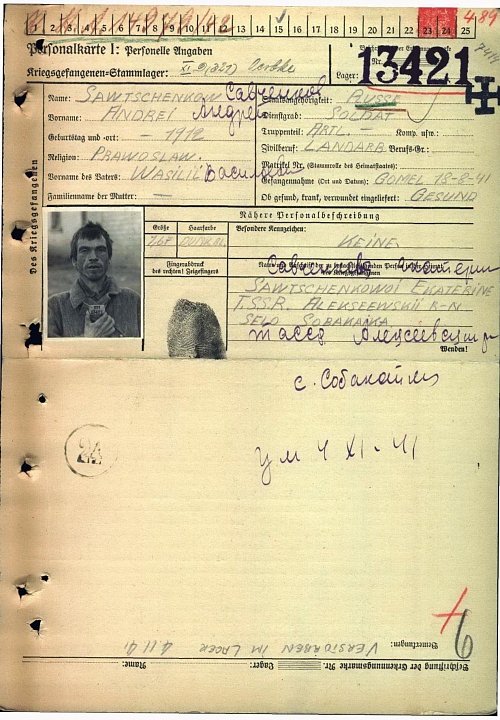 1 2 3 4 5 6 7 8 9 10 11 12 13 14 15 16 17 18 19 20 21 22 23 24 25
Personalkarte I: Personelle Angaben
Kriegsgefangenen-Stammlager:
Lager: 13421
Des Kriegsgefangenen
Name: SAWTSCHENKOW Савченков
Staatsangehörigkeit: RUSSE
Vorname: ANDREI Андрей
Dienstgrad: SOLDAT
Geburtstag und -ort: - 1912
Truppenteil: ARTL. - Komp. usw.:
Religion: PRAWOSLAW.
Zivilberuf: LANDARB. Berufs-Gr.:
Vorname des Vaters: WASILII
Matrikel Nr. (Stammrolle des Heimatstaates):
Gefangennahme (Ort und Datum): GOMEL 18-8-41
Familienname der Mutter: -
Ob gesund, krank, verwundet eingeliefert: GESUND
Nähere Personalbeschreibung
Größe Haarfarbe Besondere Kennzeichen:
1,67 DUNKEL KEINE
Fingerabdruck
des rechten! Zeigefingers
SAWTSCHENKOWOI EKATERINE
T.S.S.R. ALEKSEEWSKII R-N
SELO SOBAKAIKA
Wenden!
с. Собакайка
24
ум 4 XI - 41
6
Bemerkungen: VERSTORBEN IM LAGER 4.11.41
Beschriftung der Erkennungsmarke Nr. Lager: Name: